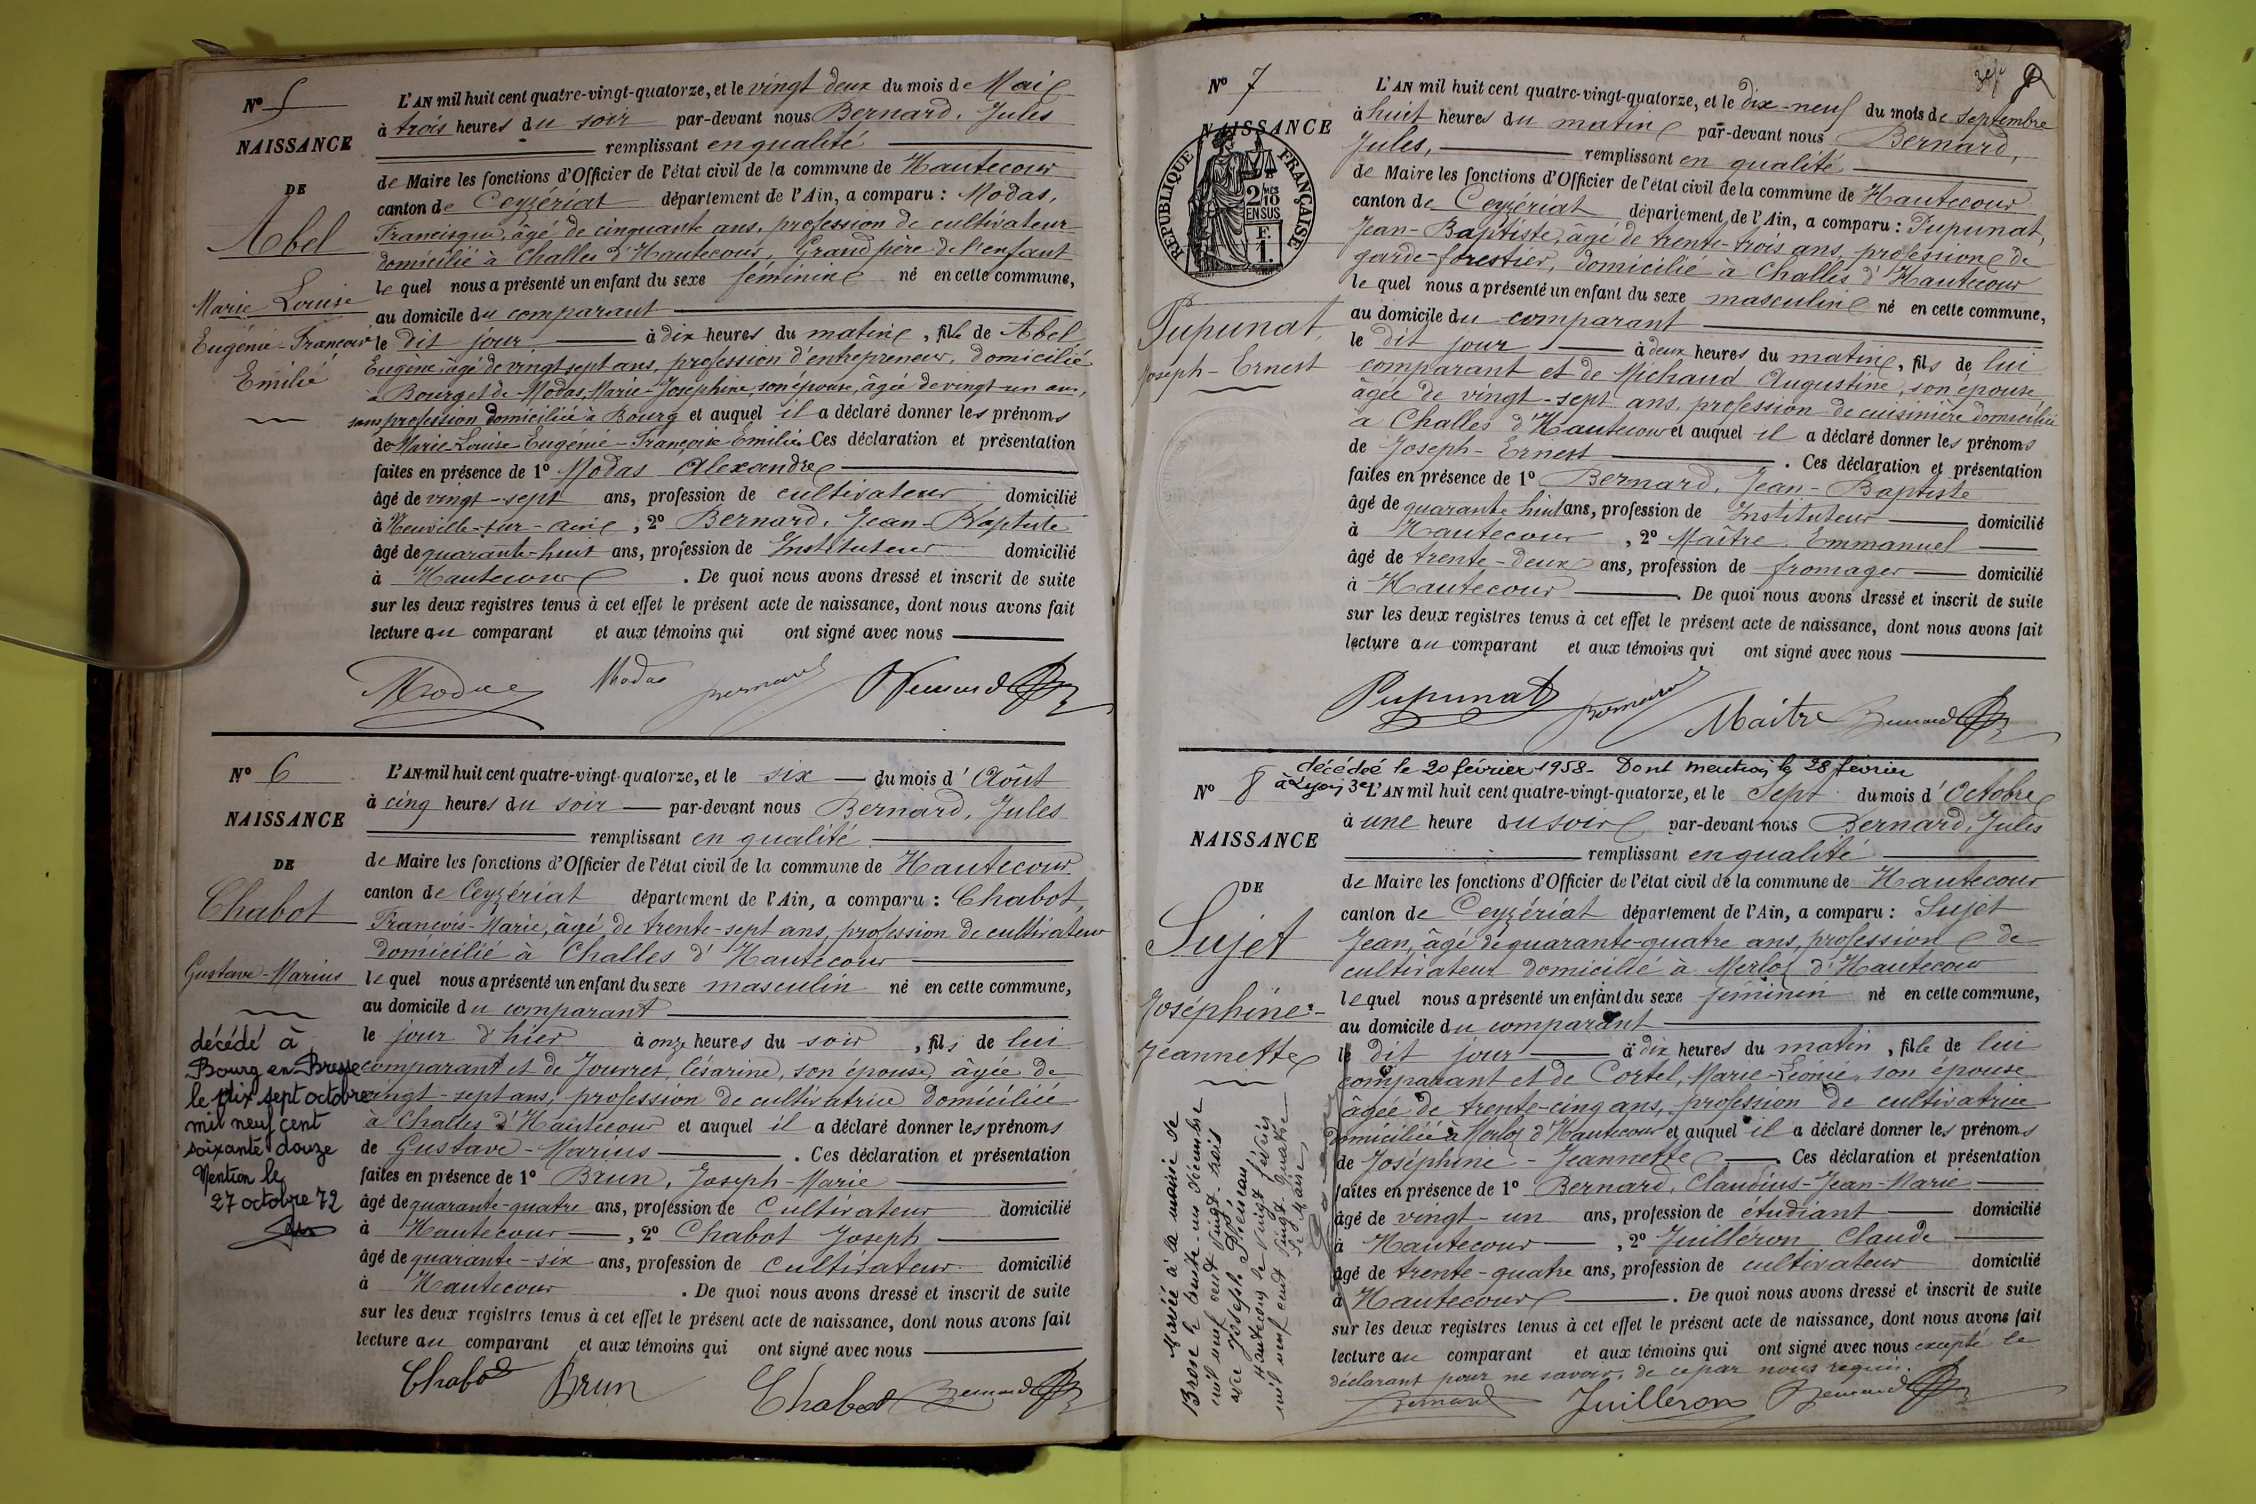 Nº 5
NAISSANCE
DE
Abel
Marie Louise
Eugénie-Françoise
Emilie
L'AN mil huit cent quatre-vingt-quatorze, et le vingt deux du mois de Mai
à trois heures du soir par-devant nous Bernard, Jules
remplissant en qualité
de Maire les fonctions d'Officier de l'état civil de la commune de Hautecour
canton de Ceyzériat département de l'Ain, a comparu : Modas,
Francisque, âgé de cinquante ans, profession de cultivateur
domicilié à Challes d'Hautecour, Grand père de l'enfant
le quel nous a présenté un enfant du sexe féminin né en cette commune,
au domicile du comparant
le dit jour à dix heures du matin, fille de Abel,
Eugène, âgé de vingt sept ans, profession d'entrepreneur, domicilié
à Bourg et de Modas, Marie-Joséphine, son épouse, âgée de vingt-un ans,
sans profession domiciliée à Bourg et auquel il a déclaré donner les prénoms
de Marie-Louise-Eugénie-Françoise Emilie Ces déclaration et présentation
faites en présence de 1º Modas Alexandre
âgé de vingt-sept ans, profession de cultivateur domicilié
à Neuville-sur-Ain, 2º Bernard, Jean-Baptiste
âgé de quarante-huit ans, profession de Instituteur domicilié
à Hautecour. De quoi nous avons dressé et inscrit de suite
sur les deux registres tenus à cet effet le présent acte de naissance, dont nous avons fait
lecture au comparant et aux témoins qui ont signé avec nous
Modas Modas Bernard Bernard
Nº 6
NAISSANCE
DE
Chabot
Gustave-Marius
décédé à
Bourg en Bresse
le dix sept octobre
mil neuf cent
soixante douze
Mention le
27 octobre 72
L'AN mil huit cent quatre-vingt-quatorze, et le six du mois d'Août
à cinq heures du soir par-devant nous Bernard, Jules
remplissant en qualité
de Maire les fonctions d'Officier de l'état civil de la commune de Hautecour
canton de Ceyzériat département de l'Ain, a comparu : Chabot,
François-Marie, âgé de trente-sept ans, profession de cultivateur
domicilié à Challes d'Hautecour
le quel nous a présenté un enfant du sexe masculin né en cette commune,
au domicile du comparant
le jour d'hier à onze heures du soir, fils de lui
comparant et de Jouvret, Césarine, son épouse, âgée de
vingt-sept ans, profession de cultivatrice domiciliée
à Challes d'Hautecour et auquel il a déclaré donner les prénoms
de Gustave-Marius. Ces déclaration et présentation
faites en présence de 1º Brun, Joseph-Marie
âgé de quarante-quatre ans, profession de Cultivateur domicilié
à Hautecour, 2º Chabot Joseph
âgé de quarante-six ans, profession de cultivateur domicilié
à Hautecour. De quoi nous avons dressé et inscrit de suite
sur les deux registres tenus à cet effet le présent acte de naissance, dont nous avons fait
lecture au comparant et aux témoins qui ont signé avec nous
Chabot Brun Chabot Bernard
Nº 7
NAISSANCE
RÉPUBLIQUE FRANÇAISE
2/10 MES
EN SUS
F.
1.
Pupunat,
Joseph-Ernest
L'AN mil huit cent quatre-vingt-quatorze, et le dix-neuf du mois de Septembre
à huit heures du matin par-devant nous Bernard,
Jules, remplissant en qualité
de Maire les fonctions d'Officier de l'état civil de la commune de Hautecour
canton de Ceyzériat département de l'Ain, a comparu : Pupunat,
Jean-Baptiste, âgé de trente-trois ans, profession de
garde-forestier, domicilié à Challes d'Hautecour
le quel nous a présenté un enfant du sexe masculin né en cette commune,
au domicile du comparant
le dit jour à deux heures du matin, fils de lui
comparant et de Michaud Augustine, son épouse,
âgée de vingt-sept ans, profession de cuisinière domiciliée
à Challes d'Hautecour et auquel il a déclaré donner les prénoms
de Joseph-Ernest. Ces déclaration et présentation
faites en présence de 1º Bernard, Jean-Baptiste
âgé de quarante huit ans, profession de Instituteur domicilié
à Hautecour, 2º Maître Emmanuel
âgé de trente-deux ans, profession de fromager domicilié
à Hautecour. De quoi nous avons dressé et inscrit de suite
sur les deux registres tenus à cet effet le présent acte de naissance, dont nous avons fait
lecture au comparant et aux témoins qui ont signé avec nous
Pupunat Bernard Maître Bernard
décédée le 20 février 1958 - Dont mention le 28 février
à Lyon 3e
Nº 8
NAISSANCE
DE
Sujet
Joséphine-
Jeannette
L'AN mil huit cent quatre-vingt-quatorze, et le Sept du mois d'Octobre
à une heure du soir par-devant nous Bernard, Jules
remplissant en qualité
de Maire les fonctions d'Officier de l'état civil de la commune de Hautecour
canton de Ceyzériat département de l'Ain, a comparu : Sujet
Jean, âgé de quarante-quatre ans, profession de
cultivateur domicilié à Merloz d'Hautecour
le quel nous a présenté un enfant du sexe féminin né en cette commune,
au domicile du comparant
le dit jour à dix heures du matin, fille de lui
comparant et de Cortel, Marie-Léonie, son épouse
âgée de trente-cinq ans, profession de cultivatrice
domiciliée à Merloz d'Hautecour et auquel il a déclaré donner les prénoms
de Joséphine-Jeannette. Ces déclaration et présentation
faites en présence de 1º Bernard, Claudius-Jean-Marie
âgé de vingt-un ans, profession de étudiant domicilié
à Hautecour, 2º Juilléron Claude
âgé de trente-quatre ans, profession de cultivateur domicilié
à Hautecour. De quoi nous avons dressé et inscrit de suite
sur les deux registres tenus à cet effet le présent acte de naissance, dont nous avons fait
lecture au comparant et aux témoins qui ont signé avec nous excepté le
déclarant pour ne savoir, de ce par nous requis.
Bernard Juilléron Bernard
Mariée à la mairie de
le trente-un décembre
mil neuf cent vingt-trois
avec Joseph
Hautecour le vingt février
mil neuf cent vingt quatre
Le Maire